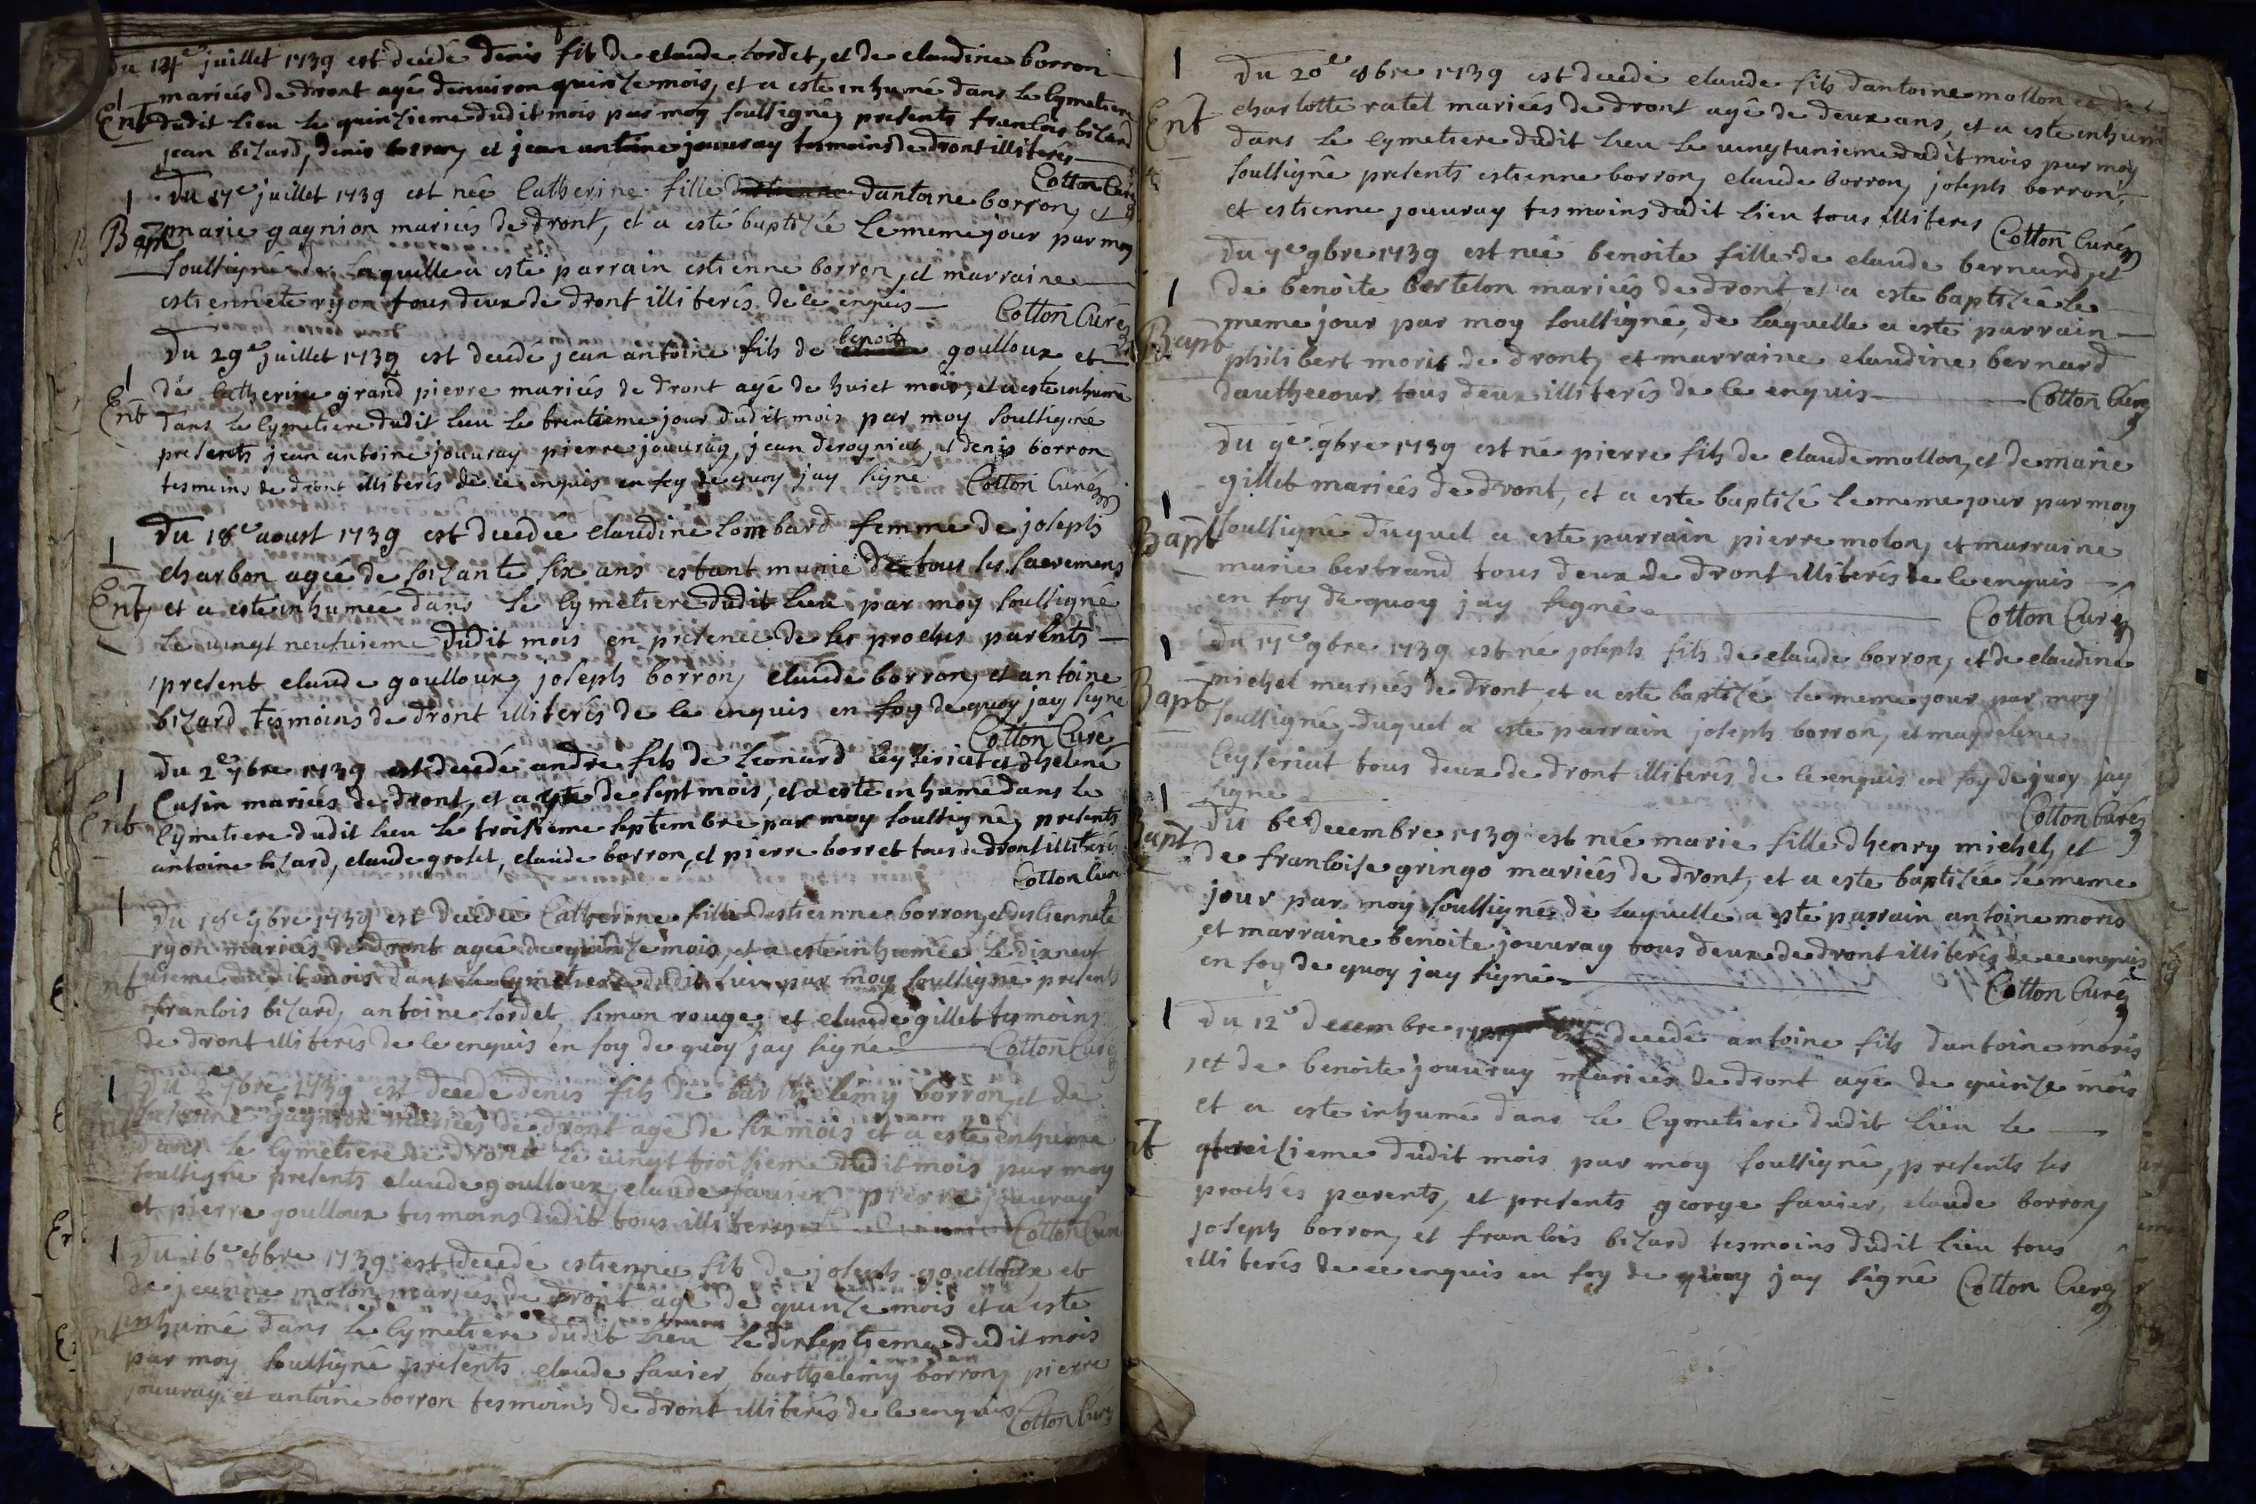 Du 14e juillet 1739 est decedé denis fils de claude cordet, et de claudine borron
mariés de dront agé denviron quinze mois, et a esté inhumé dans le cymetiere
Ent
dudit lieu le quinzieme dudit mois par moy soussigné, presents francois bizard
jean bizard, denis borron, et jean antoine jouuray tesmoins de dront illiterés
Cotton Curé
Du 17e juillet 1739 est née Catherine fille dantoine borron, et
Bapt
marie gagnion mariés de dront, et a esté baptizée le meme jour par moy
soussigné de laquelle a esté parrain estienne borron, et marraine
estiennete ryon tous deux de dront illiterés de ce enquis
Cotton Curé
Du 29e juillet 1739 est decedé jean antoine fils de benoit goulloux et
de Catherine grand pierre mariés de dront agé de huict mois, et a esté inhumé
Ent
dans le cymetiere dudit lieu le trentieme jour dudit mois par moy soussigné
presents jean antoine jouuray pierre jouuray, jean derogniat, et denis borron
tesmoins de dront illiterés de ce enquis en foy de quoy jay signé Cotton Curé
Du 18e aoust 1739 est decedée claudine Lombard femme de joseph
charbon agée de soizante six ans estant munie de tous ses sacremens
Ent
et a esté inhumée dans le cymetiere dudit lieu par moy soussigné
le vingt neufuieme dudit mois en presence de ses proches parents
present claude goulloux, joseph borron, claude borron, et antoine
bizard tesmoins de dront illiterés de ce enquis en foy de quoy jay signé
Cotton Curé
Du 2e 7bre 1739 est decedé andre fils de Leonard Ceyzeriat et dhelene
Cusin mariés de dront, et agé de sept mois, et a esté inhumé dans le
Ent
cymetiere dudit lieu le troisieme septembre par moy soussigné, presents
antoine bizard, claude groset, claude borron, et pierre borret tous de dront illiterés
Cotton Curé
Du 18e 7bre 1739 est decedée Catherine fille destienne borron, et destiennete
ryon mariés de dront agée de quinze mois, et a esté inhumée le dix neuf
uieme dudit mois dans le cymetiere dudit lieu par moy soussigné presents
francois bizard, antoine cordet, simon rouge, et claude gillet tesmoins
de dront illiterés de ce enquis en foy de quoy jay signé Cotton Curé
Du 2e 7bre 1739 est decede denis fils de barthelemy borron, et de
gagnion mariées de dront agé de six mois et a esté enhumé
dans le cymetiere de dront le vingt troisieme dudit mois par moy
soussigné presents claude goulloux, claude favier, pierre jouuray
et pierre goulloux tesmoins dudit tous illiterés Cotton Curé
Du 16e 8bre 1739 est decedé estienne fils de joseph goulloux et
de jeanne molon mariés de dront agé de quinze mois et a esté
inhumé dans le cymetiere dudit lieu le dixseptieme dudit mois
par moy soussigné presents claude favier, barthelemy borron, pierre
jouuray, et antoine borron tesmoins de dront illiterés de ce enquis Cotton Curé
Du 20e 8bre 1739 est decedé claude fils dantoine mollon et de
Ent
charlotte ratel mariés de dront agé de deux ans, et a esté inhumé
dans le cymetiere dudit lieu le vingtunieme dudit mois par moy
soussigné presents estienne borron, claude borron, joseph borron,
et estienne jouuray tesmoins dudit lieu tous illiteres Cotton Curé
Du 7e 9bre 1739 est née benoite fille de claude bernard, et
de benoite bertelon mariés de dront, et a esté baptizée le
meme jour par moy soussigné, de laquelle a esté parrain
Bapt
philibert moris de dront, et marraine claudine bernard
dauthecour tous deux illiterés de ce enquis Cotton Curé
Du 9e 9bre 1739 est né pierre fils de claude mollon, et de marie
gillet mariés de dront, et a esté baptizé le meme jour par moy
Bapt
soussigné duquel a esté parrain pierre molon, et marraine
marie bertrand tous deux de dront illiterés de ce enquis
en foy de quoy jay signé
Cotton Curé
Du 17e 9bre 1739 est né joseph fils de claude borron, et de claudine
michel mariés de dront, et a esté baptizé le meme jour par moy
Bapt
soussigné, duquel a esté parrain joseph borron, et magdelene
Ceyzeriat tous deux de dront illiterés de ce enquis en foy de quoy jay
signé
Cotton Curé
Du 6e decembre 1739 est née marie fille dhenry michel, et
Bapt
de francoise gringo mariées de dront, et a esté baptizée le meme
jour par moy soussigné de laquelle a esté parrain antoine moris
et marraine benoite jouuray tous deux de dront illiterés de ce enquis
en foy de quoy jay signé
Cotton Curé
Du 12e decembre est decedé antoine fils dantoine moris
et de benoite jouuray mariés de dront agé de quinze mois
et a esté inhumé dans le cymetiere dudit lieu le
treizieme dudit mois par moy soussigné, presents ses
proches parents, et presents george favier, claude borron,
joseph borron, et francois bizard tesmoins dudit lieu tous
illiterés de ce enquis en foy de quoy jay signé Cotton Curé